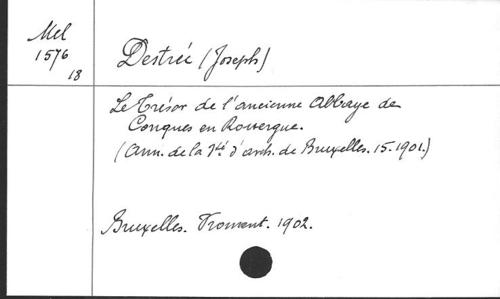 Mel
1576
18
Destrée (Joseph)
Le Trésor de l'ancienne Abbaye de
Conques en Rouergue.
(Ann. de la Sté d'arch. de Bruxelles. 15. 1901.)
Bruxelles. Vromant. 1902.